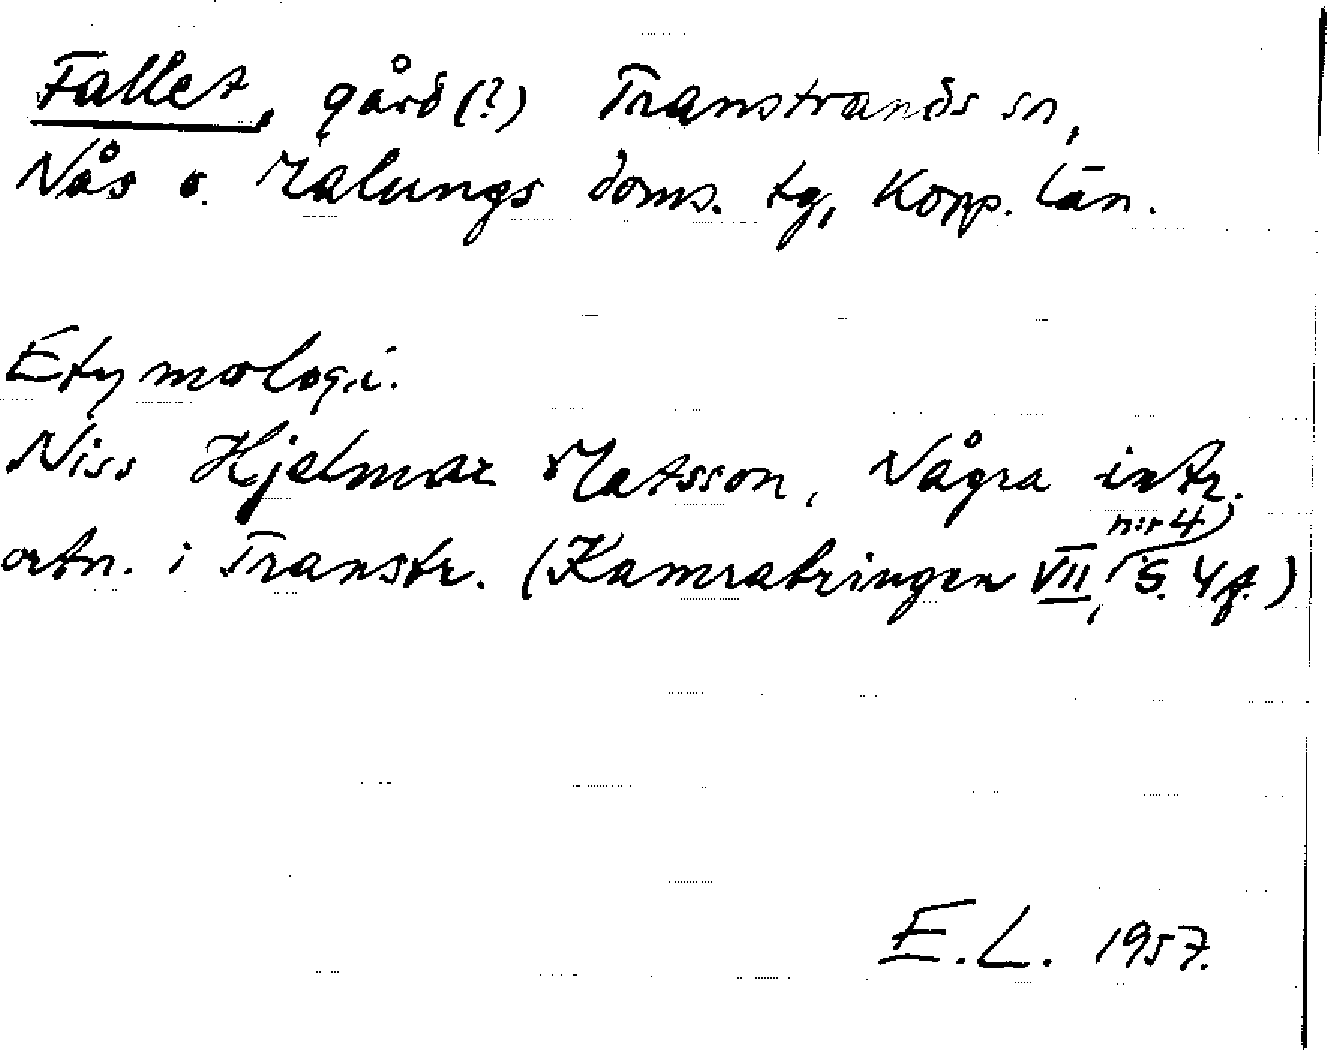 Fallet, gård (?) Transtrands sn,
Nås o. Malungs doms. tg, Kopp. län.
Etymologi.
Niss Hjalmar Matsson, Några intr.
ortn. i Transtr. (Kamratringen VII, nr 4, S. 4 f.)
E. L. 1957.